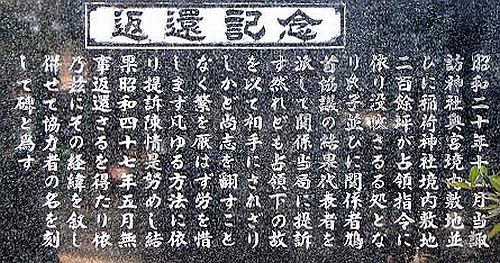 返還記念
昭和二十年十一月当諏
訪神社奥宮境内敷地並
びに稲荷神社境内敷地
二百餘坪が占領指令に
依り没収さるる処とな
り氏子並びに関係者鳩
首協議の結果代表者を
派して関係当局に提訴
す然れども占領下の故
を以て相手にされざり
しかど尚志を翻すこと
なく繁を厭はず労を惜
します凡ゆる方法に依
り提訴陳情是努めし結
果昭和四十七年五月無
事返還さるを得たり依
乃茲にその経緯を叙し
併せて協力者の名を刻
して碑と為す